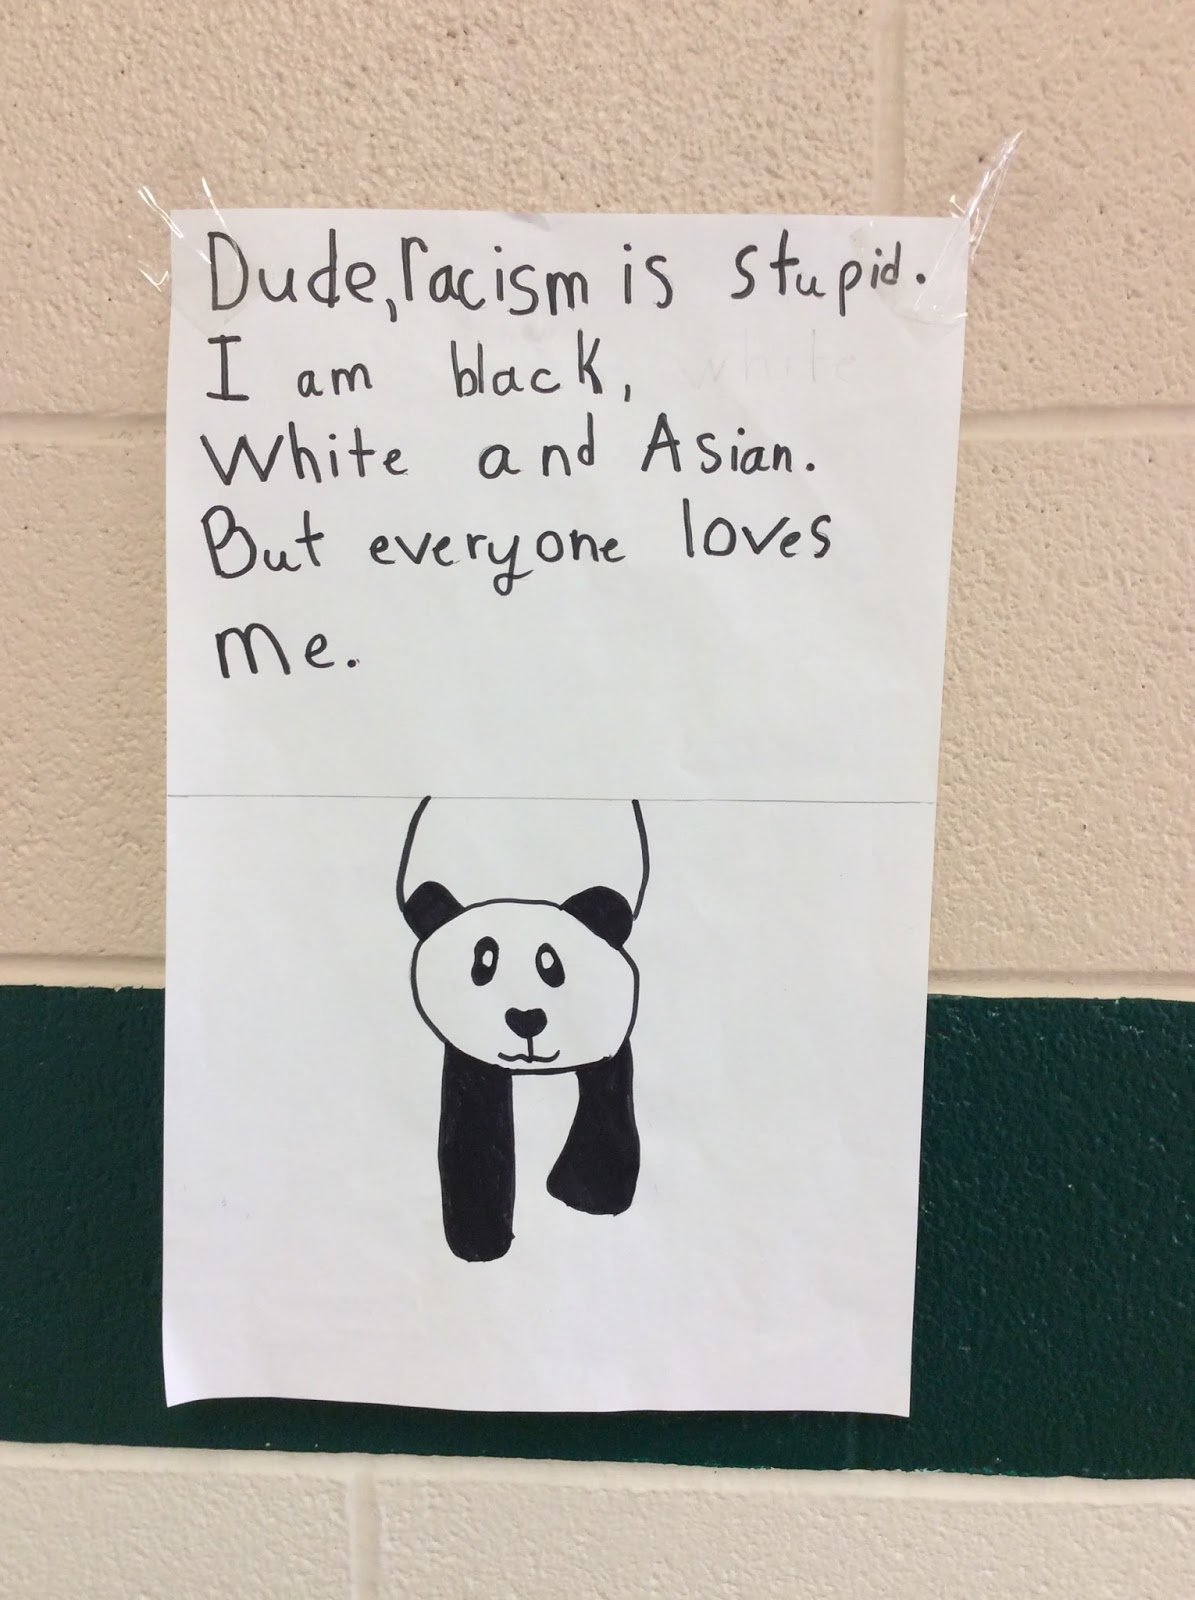 Dude, racism is stupid.
I am black, white
White and Asian.
But everyone loves
me.